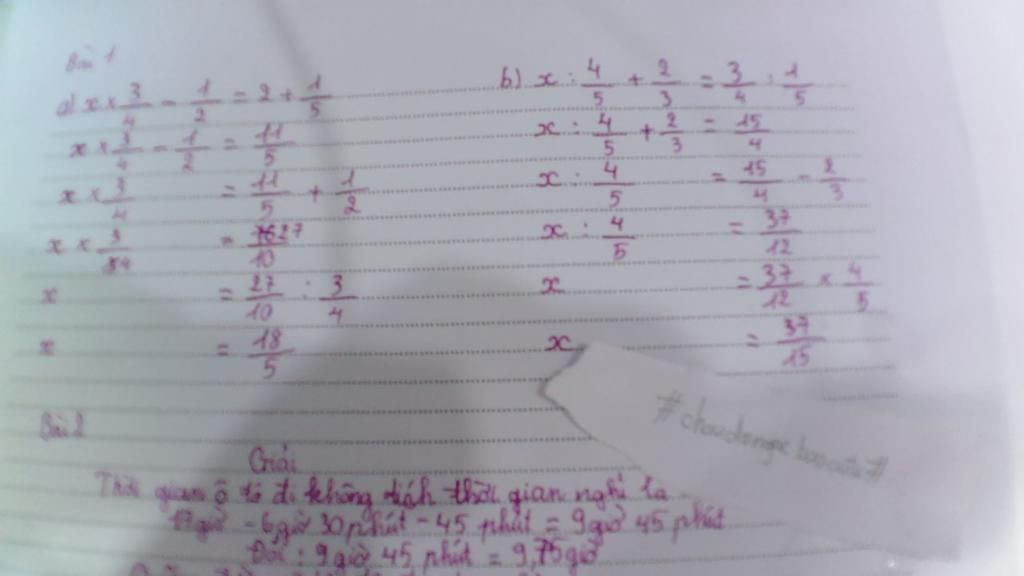 Bài 1
a) x × 3/4 - 1/2 = 2 + 1/5
x × 3/4 - 1/2 = 11/5
x × 3/4 = 11/5 + 1/2
x × 3/4 = 27/10
x = 27/10 : 3/4
x = 18/5
b) x : 4/5 + 2/3 = 3/4 : 1/5
x : 4/5 + 2/3 = 15/4
x : 4/5 = 15/4 - 2/3
x : 4/5 = 37/12
x = 37/12 × 4/5
x = 37/15
Bài 2
Giải
Thời gian ô tô đi không tính thời gian nghỉ là
17 giờ - 6 giờ 30 phút - 45 phút = 9 giờ 45 phút
Đổi : 9 giờ 45 phút = 9,75 giờ